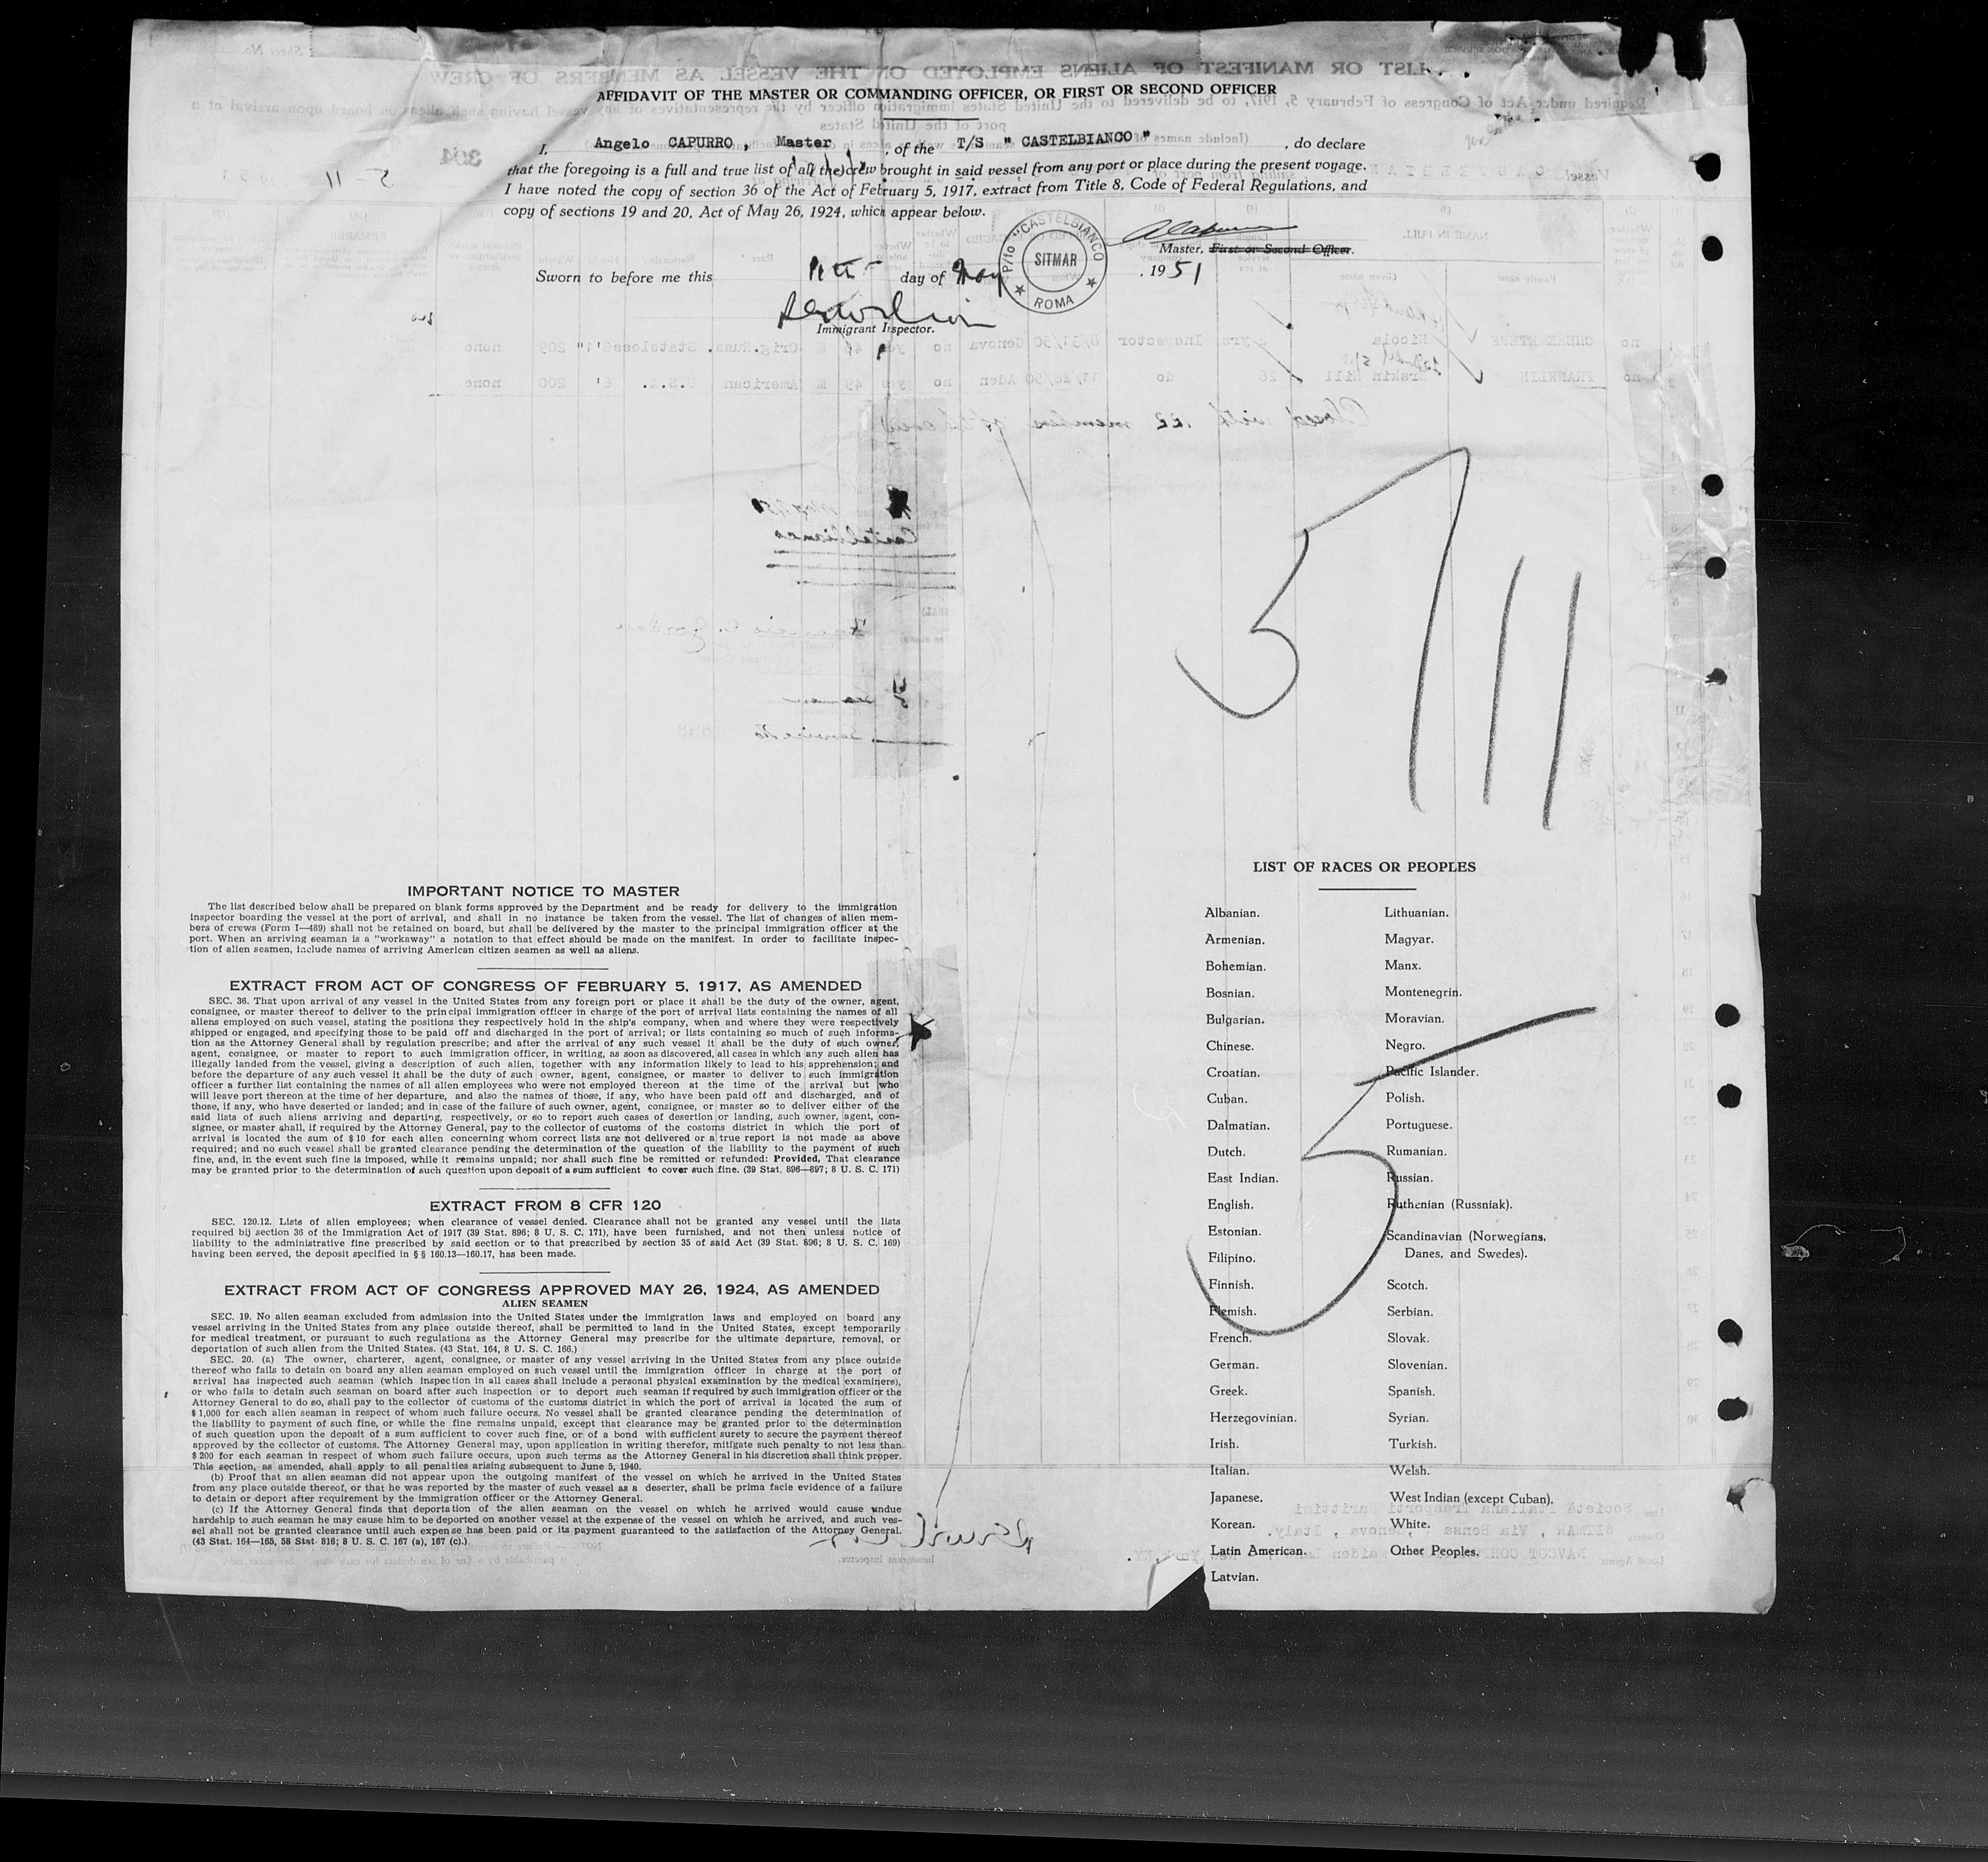 AFFIDAVIT OF THE MASTER OR COMMANDING OFFICER, OR FIRST OR SECOND OFFICER
I, Angelo CAPURRO, Master, of the T/S "CASTELBIANCO", do declare
that the foregoing is a full and true list of all the crew brought in said vessel from any port or place during the present voyage.
I have noted the copy of section 36 of the Act of February 5, 1917, extract from Title 8, Code of Federal Regulations, and
copy of sections 19 and 20, Act of May 26, 1924, which appear below.
P/fo "CASTELBIANCO"
SITMAR
ROMA
Master, First or Second Officer.
Sworn to before me this 11th day of May, 1951
Immigrant Inspector.
5/11
5
IMPORTANT NOTICE TO MASTER
The list described below shall be prepared on blank forms approved by the Department and be ready for delivery to the immigration
inspector boarding the vessel at the port of arrival, and shall in no instance be taken from the vessel. The list of changes of alien mem-
bers of crews (Form I—489) shall not be retained on board, but shall be delivered by the master to the principal immigration officer at the
port. When an arriving seaman is a "workaway" a notation to that effect should be made on the manifest. In order to facilitate inspec-
tion of alien seamen, include names of arriving American citizen seamen as well as aliens.
EXTRACT FROM ACT OF CONGRESS OF FEBRUARY 5, 1917, AS AMENDED
SEC. 36. That upon arrival of any vessel in the United States from any foreign port or place it shall be the duty of the owner, agent,
consignee, or master thereof to deliver to the principal immigration officer in charge of the port of arrival lists containing the names of all
aliens employed on such vessel, stating the positions they respectively hold in the ship's company, when and where they were respectively
shipped or engaged, and specifying those to be paid off and discharged in the port of arrival; or lists containing so much of such informa-
tion as the Attorney General shall by regulation prescribe; and after the arrival of any such vessel it shall be the duty of such owner,
agent, consignee, or master to report to such immigration officer, in writing, as soon as discovered, all cases in which any such alien has
illegally landed from the vessel, giving a description of such alien, together with any information likely to lead to his apprehension; and
before the departure of any such vessel it shall be the duty of such owner, agent, consignee, or master to deliver to such immigration
officer a further list containing the names of all alien employees who were not employed thereon at the time of the arrival but who
will leave port thereon at the time of her departure, and also the names of those, if any, who have been paid off and discharged, and of
those, if any, who have deserted or landed; and in case of the failure of such owner, agent, consignee, or master so to deliver either of the
said lists of such aliens arriving and departing, respectively, or so to report such cases of desertion or landing, such owner, agent, con-
signee, or master shall, if required by the Attorney General, pay to the collector of customs of the costoms district in which the port of
arrival is located the sum of $10 for each alien concerning whom correct lists are not delivered or a true report is not made as above
required; and no such vessel shall be granted clearance pending the determination of the question of the liability to the payment of such
fine, and, in the event such fine is imposed, while it remains unpaid; nor shall such fine be remitted or refunded: Provided, That clearance
may be granted prior to the determination of such question upon deposit of a sum sufficient to cover such fine. (39 Stat. 896—897; 8 U. S. C. 171)
EXTRACT FROM 8 CFR 120
SEC. 120.12. Lists of alien employees; when clearance of vessel denied. Clearance shall not be granted any vessel until the lists
required bij section 36 of the Immigration Act of 1917 (39 Stat. 896; 8 U. S. C. 171), have been furnished, and not then unless notice of
liability to the administrative fine prescribed by said section or to that prescribed by section 35 of said Act (39 Stat. 896; 8 U. S. C. 169)
having been served, the deposit specified in § § 160.13—160.17, has been made.
EXTRACT FROM ACT OF CONGRESS APPROVED MAY 26, 1924, AS AMENDED
ALIEN SEAMEN
SEC. 19. No alien seaman excluded from admission into the United States under the immigration laws and employed on board any
vessel arriving in the United States from any place outside thereof, shall be permitted to land in the United States, except temporarily
for medical treatment, or pursuant to such regulations as the Attorney General may prescribe for the ultimate departure, removal, or
deportation of such alien from the United States. (43 Stat. 164, 8 U. S. C. 166.)
SEC. 20. (a) The owner, charterer, agent, consignee, or master of any vessel arriving in the United States from any place outside
thereof who fails to detain on board any alien seaman employed on such vessel until the immigration officer in charge at the port of
arrival has inspected such seaman (which inspection in all cases shall include a personal physical examination by the medical examiners),
or who fails to detain such seaman on board after such inspection or to deport such seaman if required by such immigration officer or the
Attorney General to do so, shall pay to the collector of customs of the customs district in which the port of arrival is located the sum of
$1,000 for each alien seaman in respect of whom such failure occurs. No vessel shall be granted clearance pending the determination of
the liability to payment of such fine, or while the fine remains unpaid, except that clearance may be granted prior to the determination
of such question upon the deposit of a sum sufficient to cover such fine, or of a bond with sufficient surety to secure the payment thereof
approved by the collector of customs. The Attorney General may, upon application in writing therefor, mitigate such penalty to not less than
$200 for each seaman in respect of whom such failure occurs, upon such terms as the Attorney General in his discretion shall think proper.
This section, as amended, shall apply to all penalties arising subsequent to June 5, 1940.
(b) Proof that an alien seaman did not appear upon the outgoing manifest of the vessel on which he arrived in the United States
from any place outside thereof, or that he was reported by the master of such vessel as a deserter, shall be prima facie evidence of a failure
to detain or deport after requirement by the immigration officer or the Attorney General.
(c) If the Attorney General finds that deportation of the alien seaman on the vessel on which he arrived would cause undue
hardship to such seaman he may cause him to be deported on another vessel at the expense of the vessel on which he arrived, and such ves-
sel shall not be granted clearance until such expense has been paid or its payment guaranteed to the satisfaction of the Attorney General.
(43 Stat. 164—165, 58 Stat. 816; 8 U. S. C. 167 (a), 167 (c).)
LIST OF RACES OR PEOPLES
Albanian.
Armenian.
Bohemian.
Bosnian.
Bulgarian.
Chinese.
Croatian.
Cuban.
Dalmatian.
Dutch.
East Indian.
English.
Estonian.
Filipino.
Finnish.
Flemish.
French.
German.
Greek.
Herzegovinian.
Irish.
Italian.
Japanese.
Korean.
Latin American.
Latvian.
Lithuanian.
Magyar.
Manx.
Montenegrin.
Moravian.
Negro.
Pacific Islander.
Polish.
Portuguese.
Rumanian.
Russian.
Ruthenian (Russniak).
Scandinavian (Norwegians,
Danes, and Swedes).
Scotch.
Serbian.
Slovak.
Slovenian.
Spanish.
Syrian.
Turkish.
Welsh.
West Indian (except Cuban).
White.
Other Peoples.